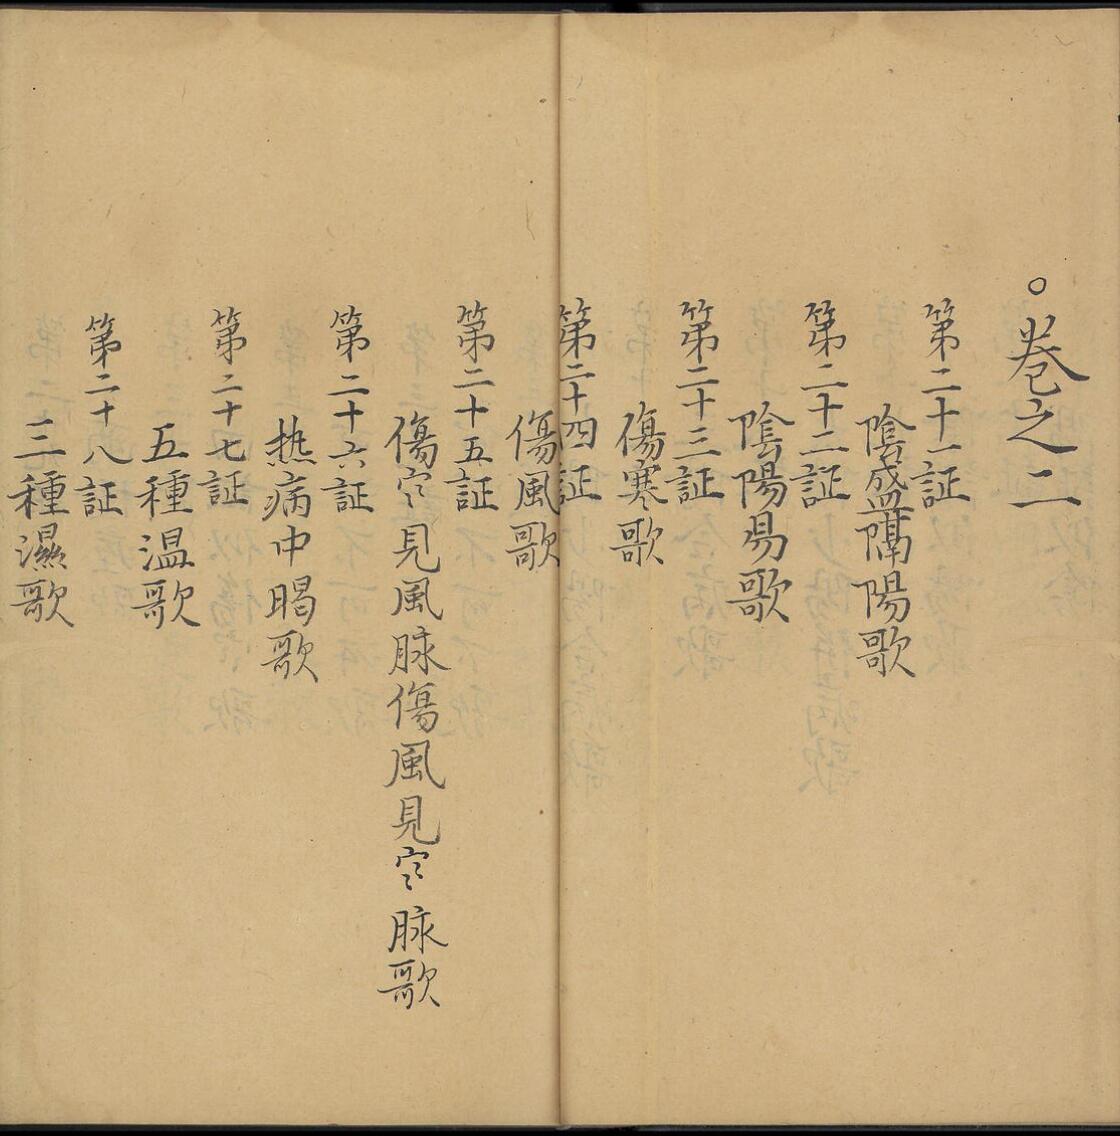 。卷之二
第二十一証
陰盛隔陽歌
第二十二証
陰陽易歌
第二十三証
傷寒歌
第二十四証
傷風歌
第二十五証
傷寒見風脉傷風見寒脉歌
第二十六証
热病中暍歌
第二十七証
五種温歌
第二十八証
三種濕歌